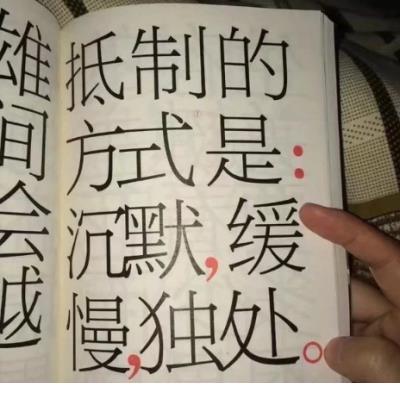 抵制的
方式是：
沉默，缓
慢，独处。
雄
间
会
越